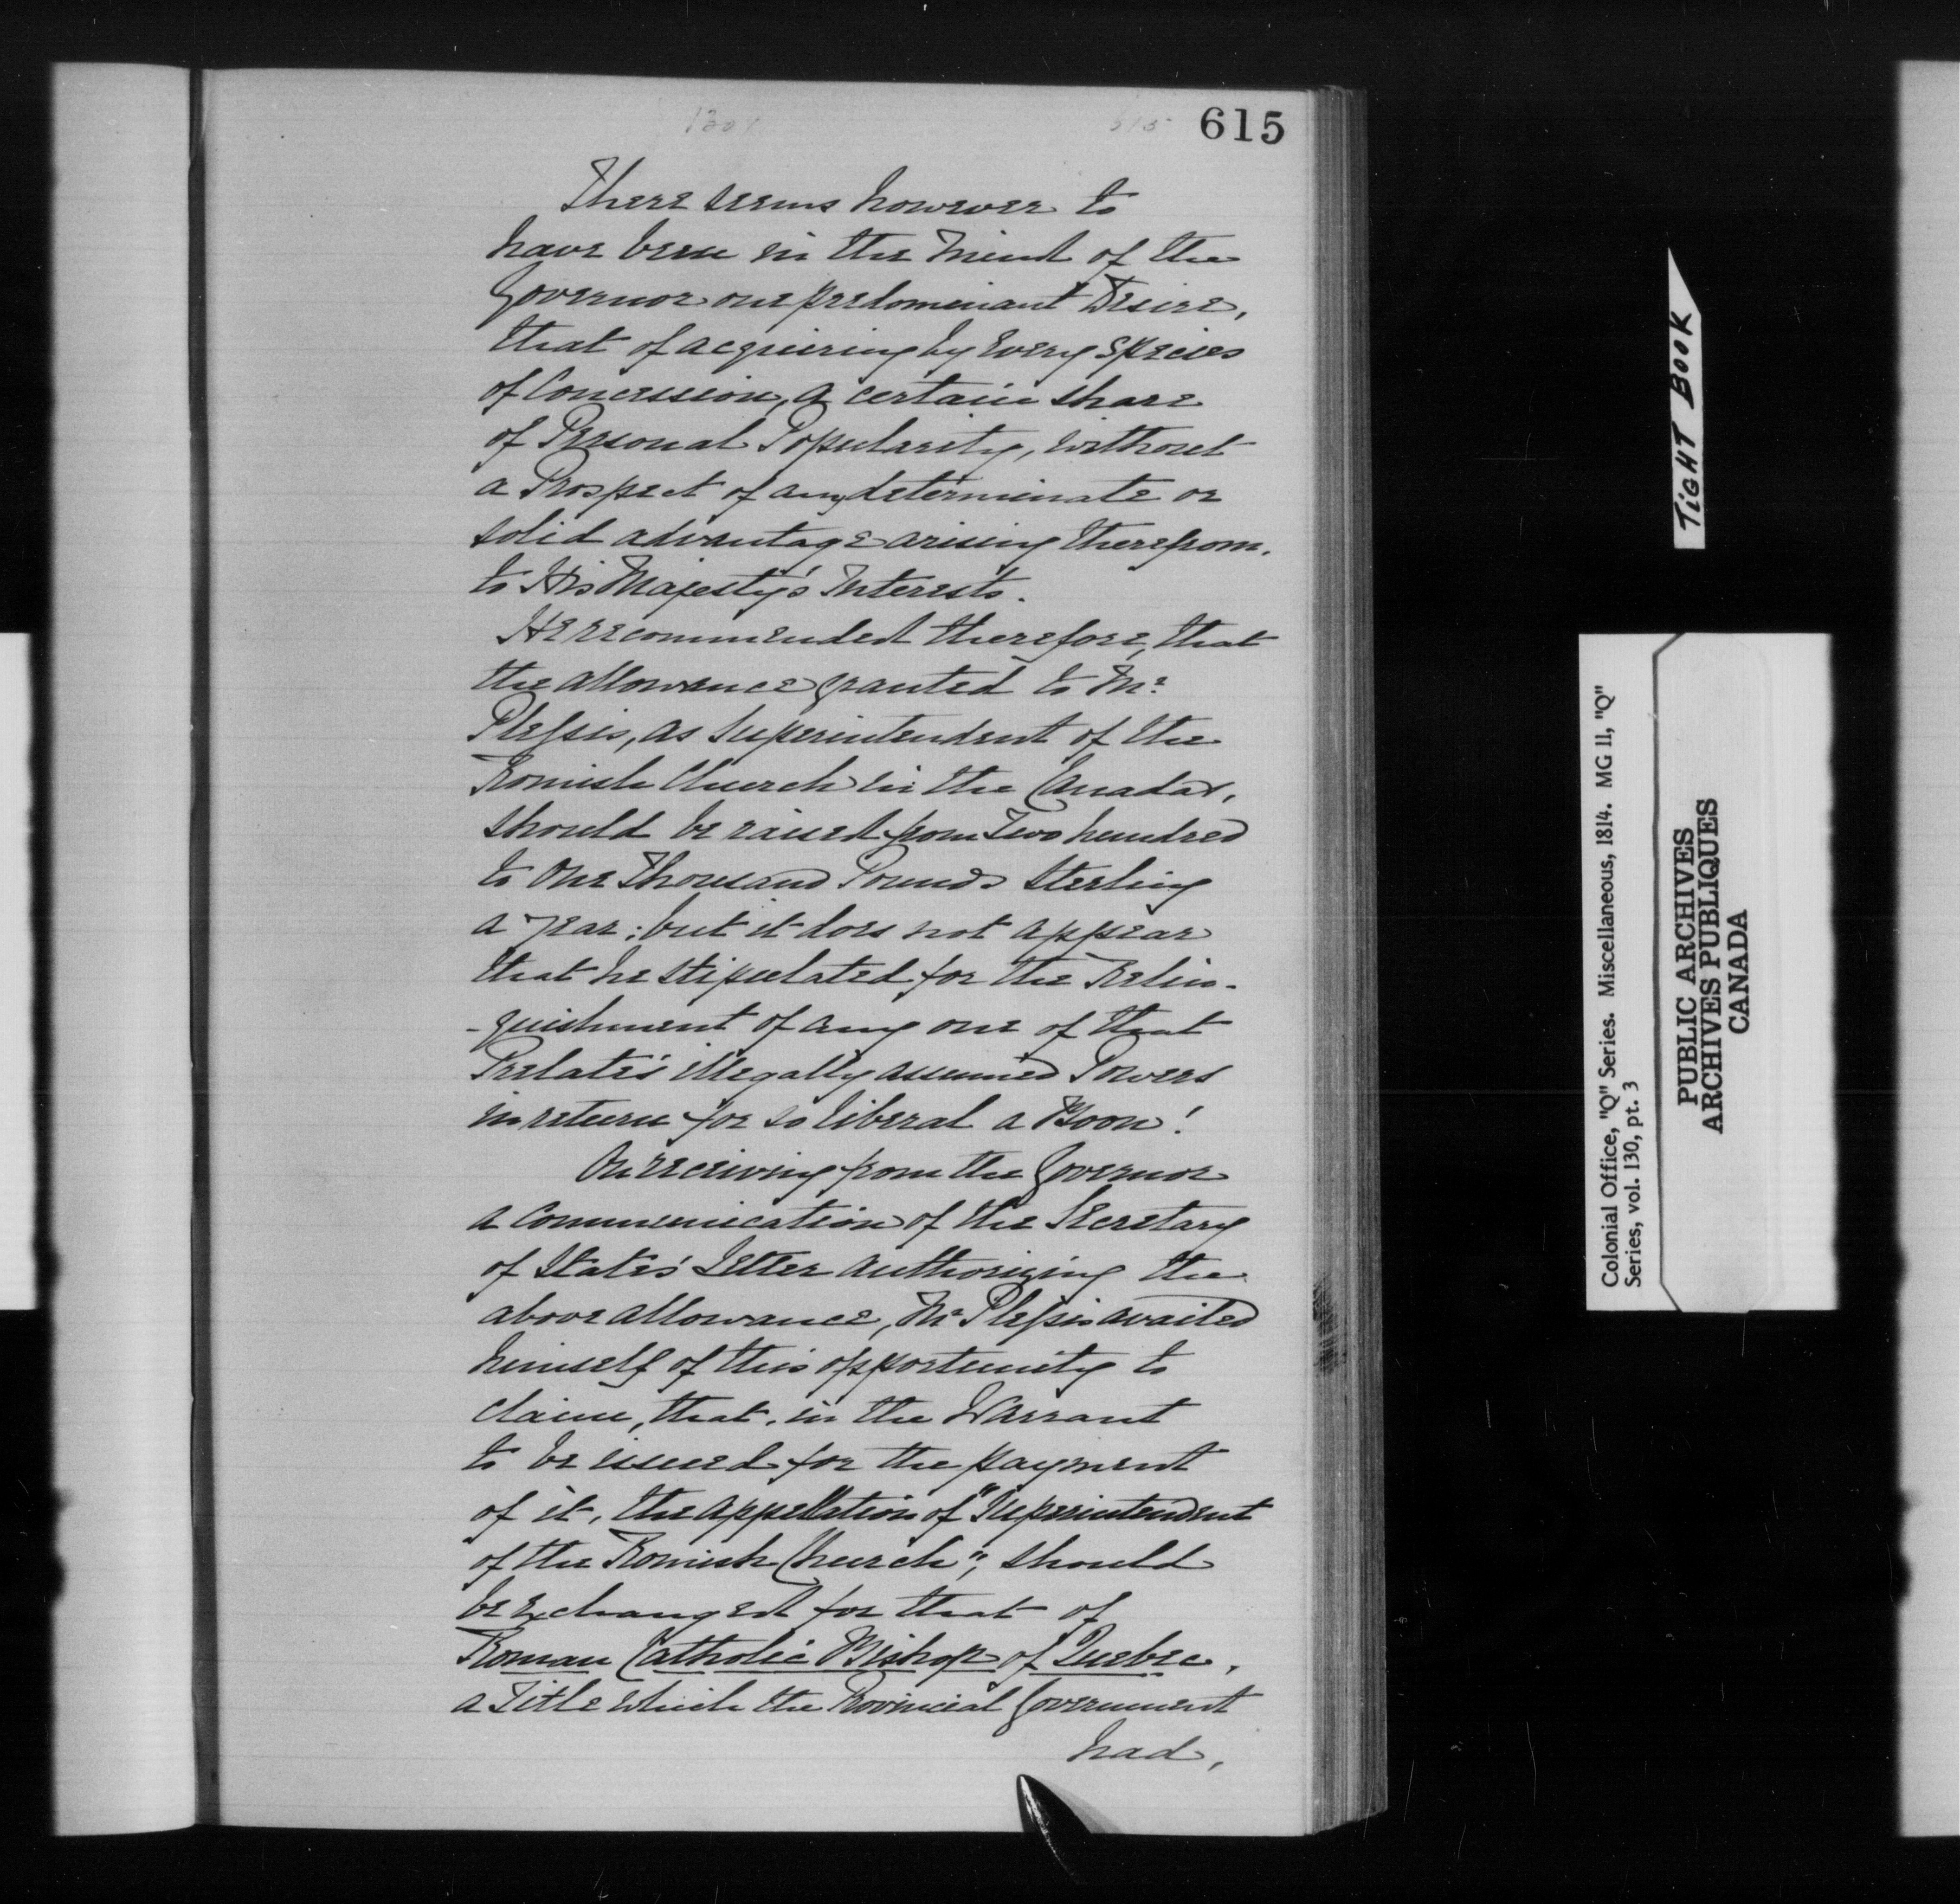 615
There seems however to
have been in the Mind of the
Governor one predominant Desire,
that of acquiring by every Species
of Concession, a certain share
of Personal Popularity, without
a Prospect of any determinate or
solid advantage arising therefrom,
to His Majesty's Interests.
He recommended therefore, that
the allowance granted to Mr
Plessis, as Superintendent of the
Romish Church in the Canadas,
should be raised from Two hundred
to One Thousand Pounds Sterling
a Year; but it does not appear
that he stipulated for the Relin-
-quishment of any one of that
Prelate's illegally assumed Powers
in return for so liberal a Boon!
On receiving from the Governor
a Communication of the Secretary
of State's Letter authorizing the
above allowance, Mr Plessis availed
himself of this opportunity to
claim, that, in the Warrant
to be issued for the payment
of it, the appellation of "Superintendent
of the Romish Church", should
be Exchanged for that of
Roman Catholic Bishop of Quebec,
a Title which the Provincial Government
had,
TIGHT BOOK
Colonial Office, "Q" Series. Miscellaneous, 1814. MG 11, "Q"
Series, vol. 130, pt. 3
PUBLIC ARCHIVES
ARCHIVES PUBLIQUES
CANADA